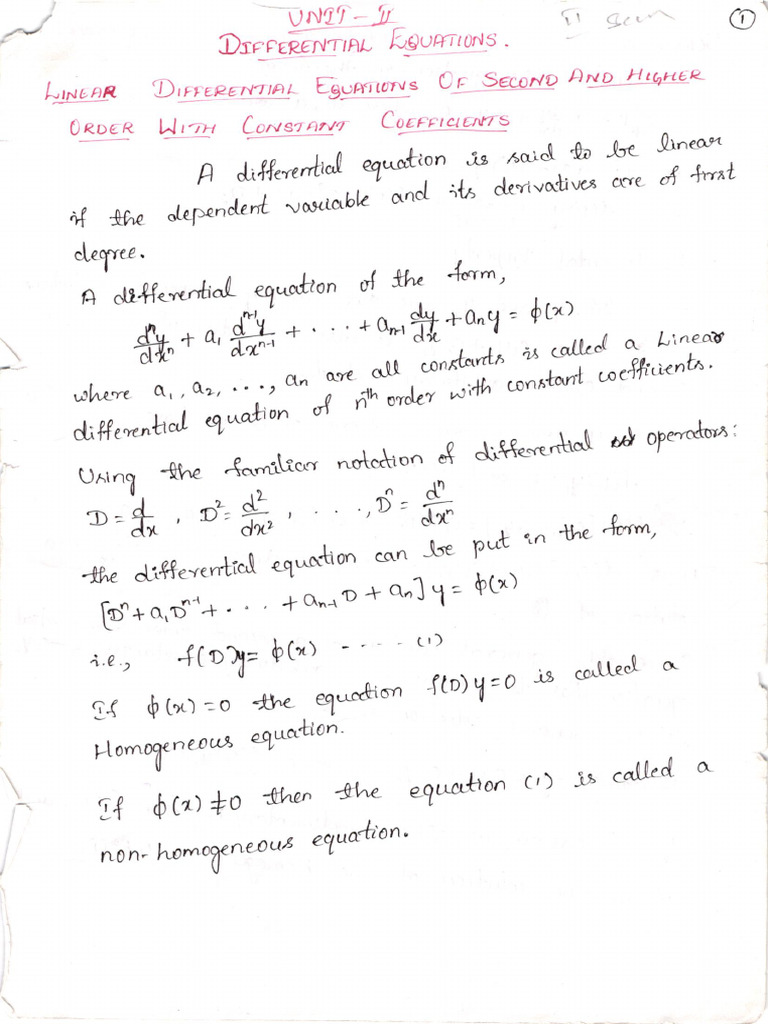 UNIT-II
II Sem
1
DIFFERENTIAL EQUATIONS.
LINEAR DIFFERENTIAL EQUATIONS OF SECOND AND HIGHER
ORDER WITH CONSTANT COEFFICIENTS
A differential equation is said to be linear
if the dependent variable and its derivatives are of first
degree.
A differential equation of the form,
dⁿy/dxⁿ + a₁ dⁿ⁻¹y/dxⁿ⁻¹ + . . . + aₙ₋₁ dy/dx + aₙy = ϕ(x)
where a₁, a₂, ..., aₙ are all constants is called a Linear
differential equation of nᵗʰ order with constant coefficients.
Using the familiar notation of differential operators:
D = d/dx , D² = d²/dx² , . . . ., Dⁿ = dⁿ/dxⁿ
the differential equation can be put in the form,
[Dⁿ + a₁Dⁿ⁻¹ + . . . + aₙ₋₁D + aₙ] y = ϕ(x)
i.e., f(D)y = ϕ(x) - .... (1)
If ϕ(x) = 0 the equation f(D)y = 0 is called a
Homogeneous equation.
If ϕ(x) ≠ 0 then the equation (1) is called a
non-homogeneous equation.